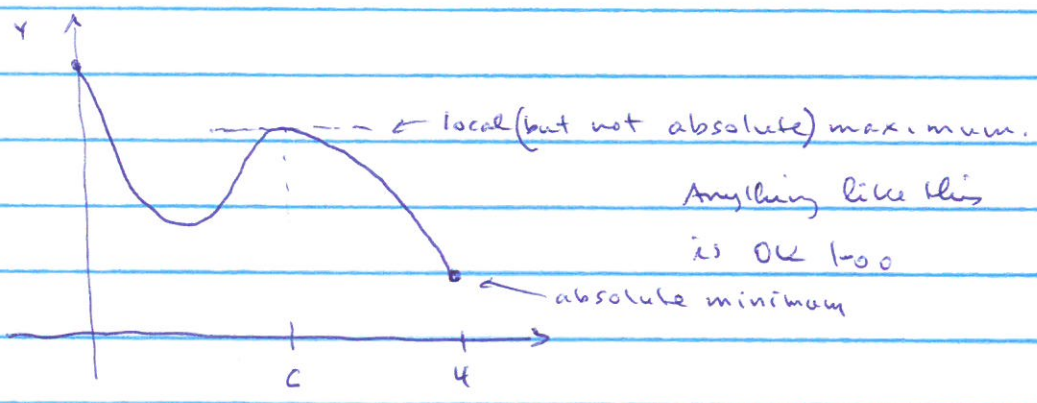 Y
← local (but not absolute) maximum.
Anything like this
is OK too
← absolute minimum
C 4